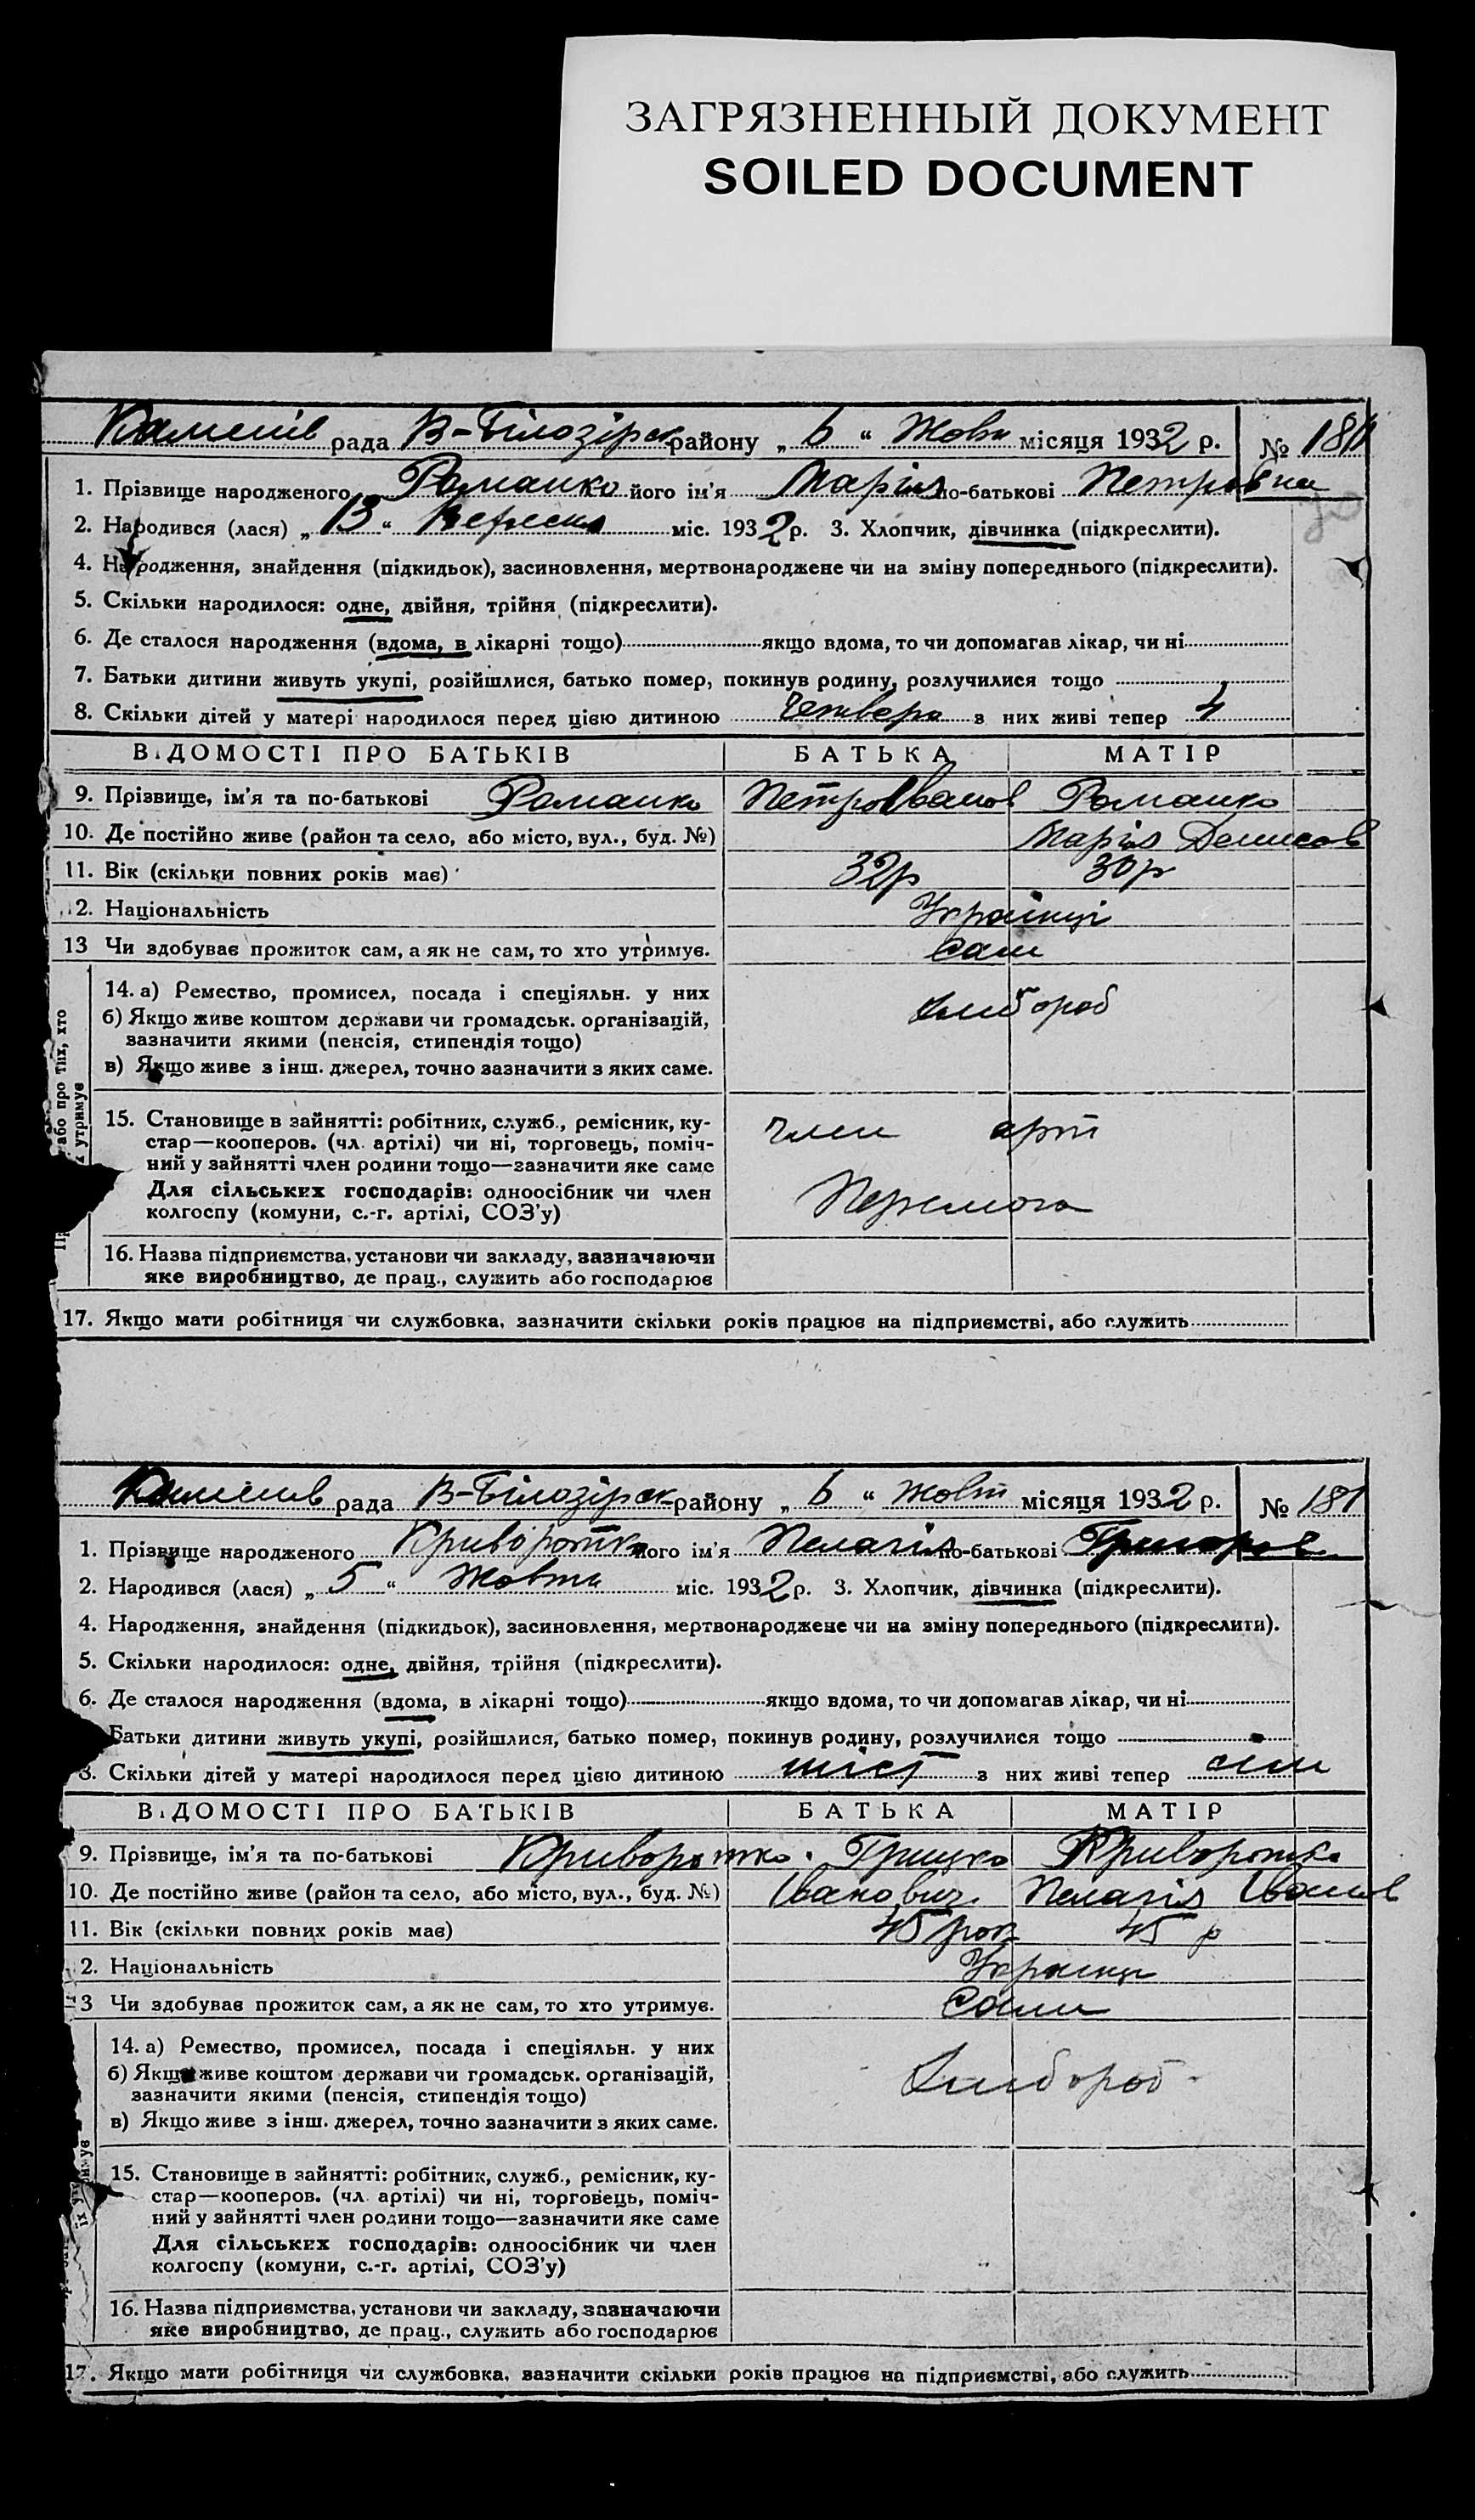 ЗАГРЯЗНЕННЫЙ ДОКУМЕНТ
SOILED DOCUMENT
рада В-Білозірск району „ 6 “ Жовт місяця 1932 р. №
1. Прізвище народженого Романко його ім'я Марія по-батькові Петровна
2. Народився (лася) „ 13 “ Вересня міс. 1932 р. 3. Хлопчик, дівчинка (підкреслити).
4. Народження, знайдення (підкидьок), засиновлення, мертвонароджене чи на зміну попереднього (підкреслити).
5. Скільки народилося: одне, двійня, трійня (підкреслити).
6. Де сталося народження (вдома, в лікарні тощо) якщо вдома, то чи допомагав лікар, чи ні
7. Батьки дитини живуть укупі, розійшлися, батько помер, покинув родину, розлучилися тощо
8. Скільки дітей у матері народилося перед цією дитиною Четверо з них живі тепер 4
ВІДОМОСТІ ПРО БАТЬКІВ БАТЬКА МАТІР
9. Прізвище, ім'я та по-батькові Романко Петро Іванов Романко
10. Де постійно живе (район та село, або місто, вул., буд. №) Марія Денисов
11. Вік (скільки повних років має) 32р 30р
2. Національність Українці
13 Чи здобуває прожиток сам, а як не сам, то хто утримує. Сами
або про тих, хто
утримує
14. а) Ремество, промисел, посада і спеціяльн. у них хлібороб
б) Якщо живе коштом держави чи громадськ. організацій,
зазначити якими (пенсія, стипендія тощо)
в) Якщо живе з інш. джерел, точно зазначити з яких саме.
15. Становище в зайнятті: робітник, служб., ремісник, ку-
стар—кооперов. (чл. артілі) чи ні, торговець, поміч- член арт
ний у зайнятті член родини тощо—зазначити яке саме
Для сільських господарів: одноосібник чи член Перемога
колгоспу (комуни, с.-г. артілі, СОЗ'у)
16. Назва підприємства, установи чи закладу, зазначаючи
яке виробництво, де прац., служить або господарює
17. Якщо мати робітниця чи службовка, зазначити скільки років працює на підприємстві, або служить
рада В-Білозірск району „ 6 “ Жовт місяця 1932 р. № 181
1. Прізвище народженого Криворотко його ім'я Пелагія по-батькові Григоров
2. Народився (лася) „ 5 “ Жовтн міс. 1932 р. 3. Хлопчик, дівчинка (підкреслити).
4. Народження, знайдення (підкидьок), засиновлення, мертвонароджене чи на зміну попереднього (підкреслити).
5. Скільки народилося: одне, двійня, трійня (підкреслити).
6. Де сталося народження (вдома, в лікарні тощо) якщо вдома, то чи допомагав лікар, чи ні
Батьки дитини живуть укупі, розійшлися, батько помер, покинув родину, розлучилися тощо
8. Скільки дітей у матері народилося перед цією дитиною шіст з них живі тепер
ВІДОМОСТІ ПРО БАТЬКІВ БАТЬКА МАТІР
9. Прізвище, ім'я та по-батькові Криворотко Грицко Криворотко
10. Де постійно живе (район та село, або місто, вул., буд. №) Іванович Пелагія Іванов
11. Вік (скільки повних років має) 45 рок 45 р
2. Національність Українці
13 Чи здобуває прожиток сам, а як не сам, то хто утримує. Сами
14. а) Ремество, промисел, посада і спеціяльн. у них
б) Якщо живе коштом держави чи громадськ. організацій, Хлібороб
зазначити якими (пенсія, стипендія тощо)
в) Якщо живе з інш. джерел, точно зазначити з яких саме.
15. Становище в зайнятті: робітник, служб., ремісник, ку-
стар—кооперов. (чл. артілі) чи ні, торговець, поміч-
ний у зайнятті член родини тощо—зазначити яке саме
Для сільських господарів: одноосібник чи член
колгоспу (комуни, с.-г. артілі, СОЗ'у)
16. Назва підприємства, установи чи закладу, зазначаючи
яке виробництво, де прац., служить або господарює
17. Якщо мати робітниця чи службовка, зазначити скільки років працює на підприємстві, або служить